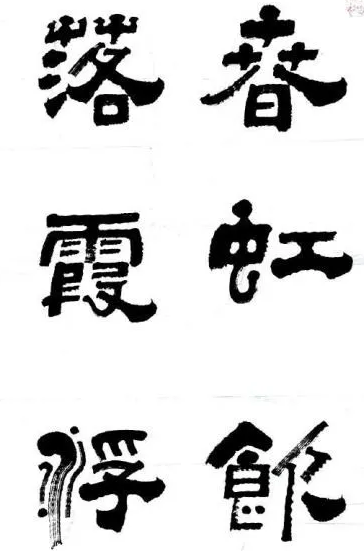 春虹飲
落霞浮